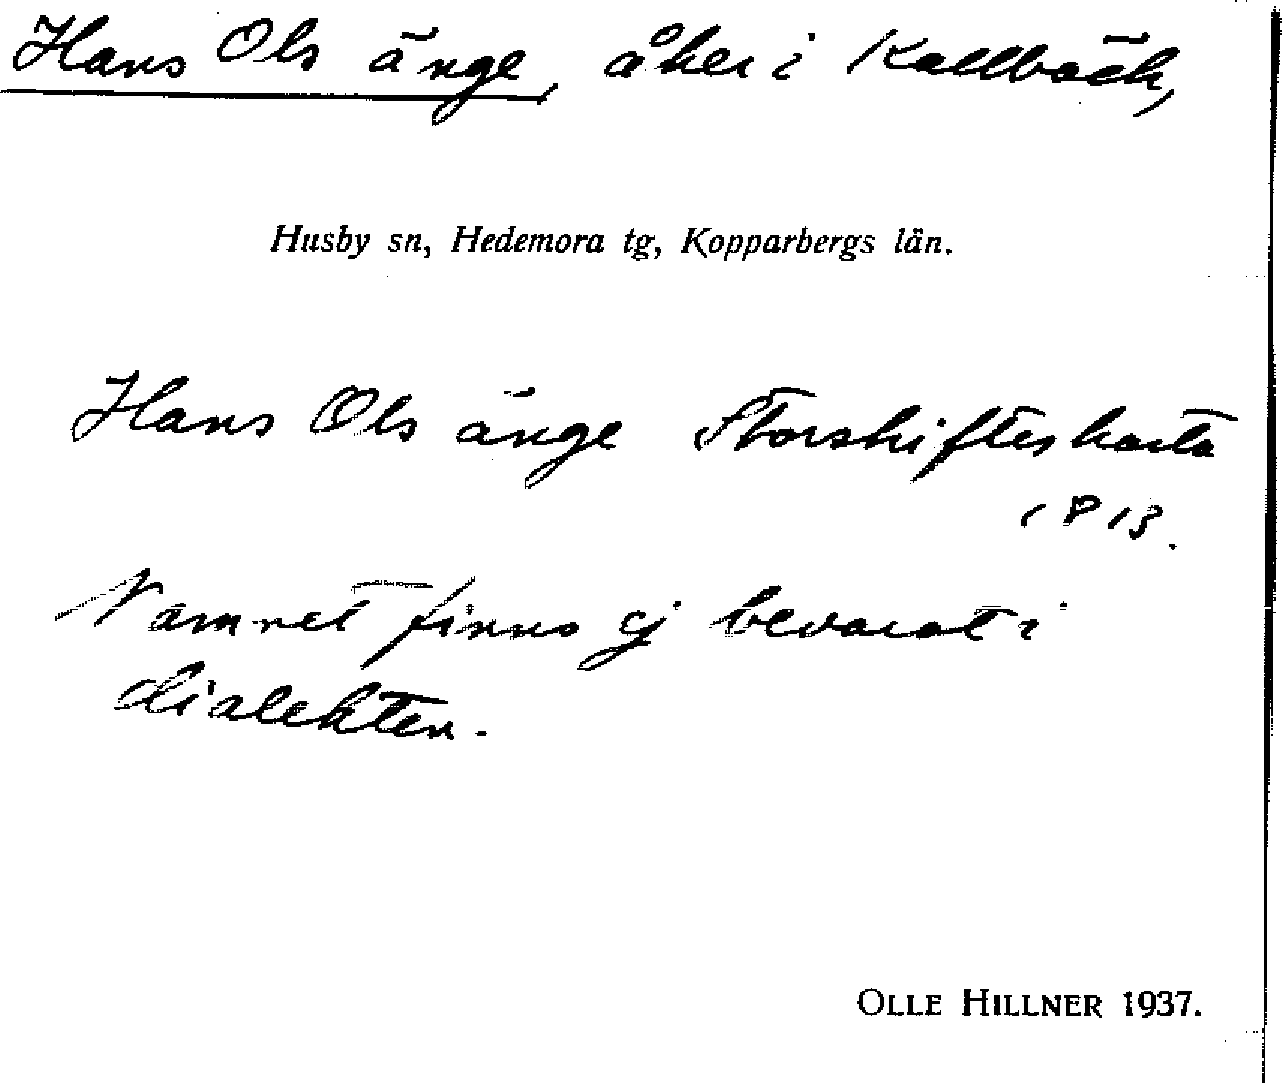 Hans Ols änge, åker i Kallbäck,
Husby sn, Hedemora tg, Kopparbergs län.
Hans Ols änge Storskifteskarta
1813.
Namnet finns ej bevarat i
dialekten.
OLLE HILLNER 1937.